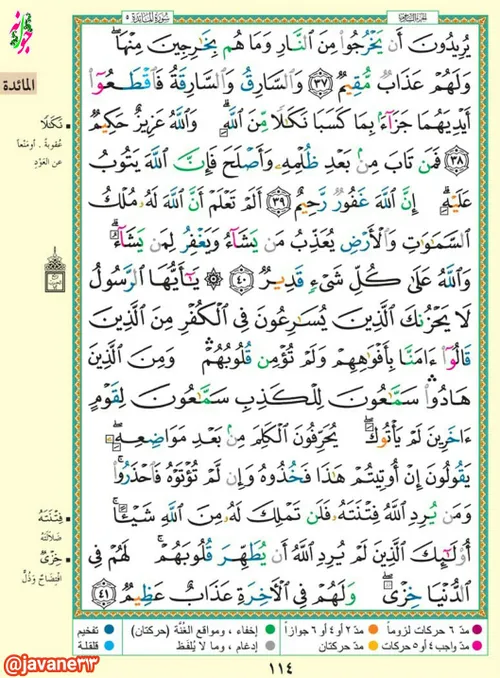 سُورَةُ المَائِدَة ٥
الجزء السادس
المائدة
يُرِيدُونَ أَن يَخْرُجُوا۟ مِنَ ٱلنَّارِ وَمَا هُم بِخَٰرِجِينَ مِنْهَا ۖ
وَلَهُمْ عَذَابٌ مُّقِيمٌ ٣٧ وَٱلسَّارِقُ وَٱلسَّارِقَةُ فَٱقْطَعُوٓا۟
أَيْدِيَهُمَا جَزَآءًۢ بِمَا كَسَبَا نَكَٰلًا مِّنَ ٱللَّهِ ۗ وَٱللَّهُ عَزِيزٌ حَكِيمٌ
٣٨ فَمَن تَابَ مِنۢ بَعْدِ ظُلْمِهِۦ وَأَصْلَحَ فَإِنَّ ٱللَّهَ يَتُوبُ
عَلَيْهِ ۗ إِنَّ ٱللَّهَ غَفُورٌ رَّحِيمٌ ٣٩ أَلَمْ تَعْلَمْ أَنَّ ٱللَّهَ لَهُۥ مُلْكُ
ٱلسَّمَٰوَٰتِ وَٱلْأَرْضِ يُعَذِّبُ مَن يَشَآءُ وَيَغْفِرُ لِمَن يَشَآءُ ۗ
وَٱللَّهُ عَلَىٰ كُلِّ شَىْءٍ قَدِيرٌ ٤٠ ۞ يَٰٓأَيُّهَا ٱلرَّسُولُ
لَا يَحْزُنكَ ٱلَّذِينَ يُسَٰرِعُونَ فِى ٱلْكُفْرِ مِنَ ٱلَّذِينَ
قَالُوٓا۟ ءَامَنَّا بِأَفْوَٰهِهِمْ وَلَمْ تُؤْمِن قُلُوبُهُمْ ۛ وَمِنَ ٱلَّذِينَ
هَادُوا۟ ۛ سَمَّٰعُونَ لِلْكَذِبِ سَمَّٰعُونَ لِقَوْمٍ
ءَاخَرِينَ لَمْ يَأْتُوكَ ۖ يُحَرِّفُونَ ٱلْكَلِمَ مِنۢ بَعْدِ مَوَاضِعِهِۦ ۖ
يَقُولُونَ إِنْ أُوتِيتُمْ هَٰذَا فَخُذُوهُ وَإِن لَّمْ تُؤْتَوْهُ فَٱحْذَرُوا۟ ۚ
وَمَن يُرِدِ ٱللَّهُ فِتْنَتَهُۥ فَلَن تَمْلِكَ لَهُۥ مِنَ ٱللَّهِ شَيْـًٔا ۚ
أُو۟لَٰٓئِكَ ٱلَّذِينَ لَمْ يُرِدِ ٱللَّهُ أَن يُطَهِّرَ قُلُوبَهُمْ ۚ لَهُمْ فِى
ٱلدُّنْيَا خِزْىٌ ۖ وَلَهُمْ فِى ٱلْءَاخِرَةِ عَذَابٌ عَظِيمٌ ٤١
نَكَٰلًا
عقوبةً . أو منعاً
عن العَوْدِ
فِتْنَتَهُ
ضَلَالَتَهُ
خِزْىٌ
افْتِضَاحٌ وَذُلٌّ
مدّ ٦ حركات لزوماً مدّ ٢ أو ٤ أو ٦ جوازاً إخفاء ، ومواقع الغُنَّة (حركتان) تفخيم
مدّ واجب ٤ أو ٥ حركات مدّ حركتان إدغام ، وما لا يُلفَظ قلقلة
١١٤
@javane٢٣